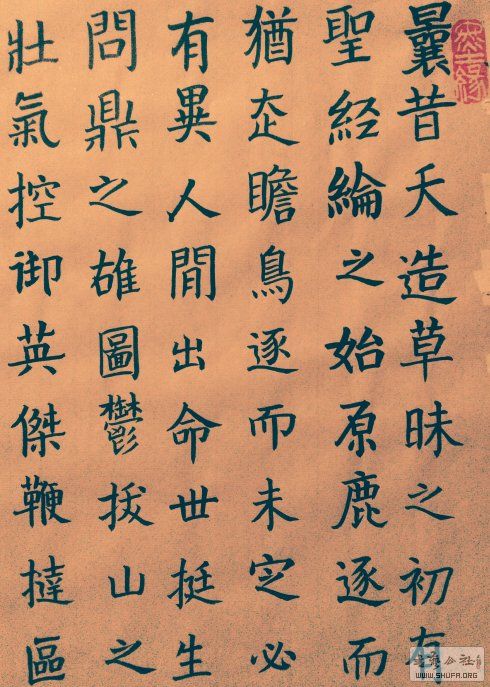 曩昔天造草昧之初有
聖經綸之始原鹿逐而
猶走瞻鳥逐而未定必
有異人間出命世挺生
問鼎之雄圖鬱拔山之
壯氣控御英傑鞭撻區
WWW.SHUFA.ORG